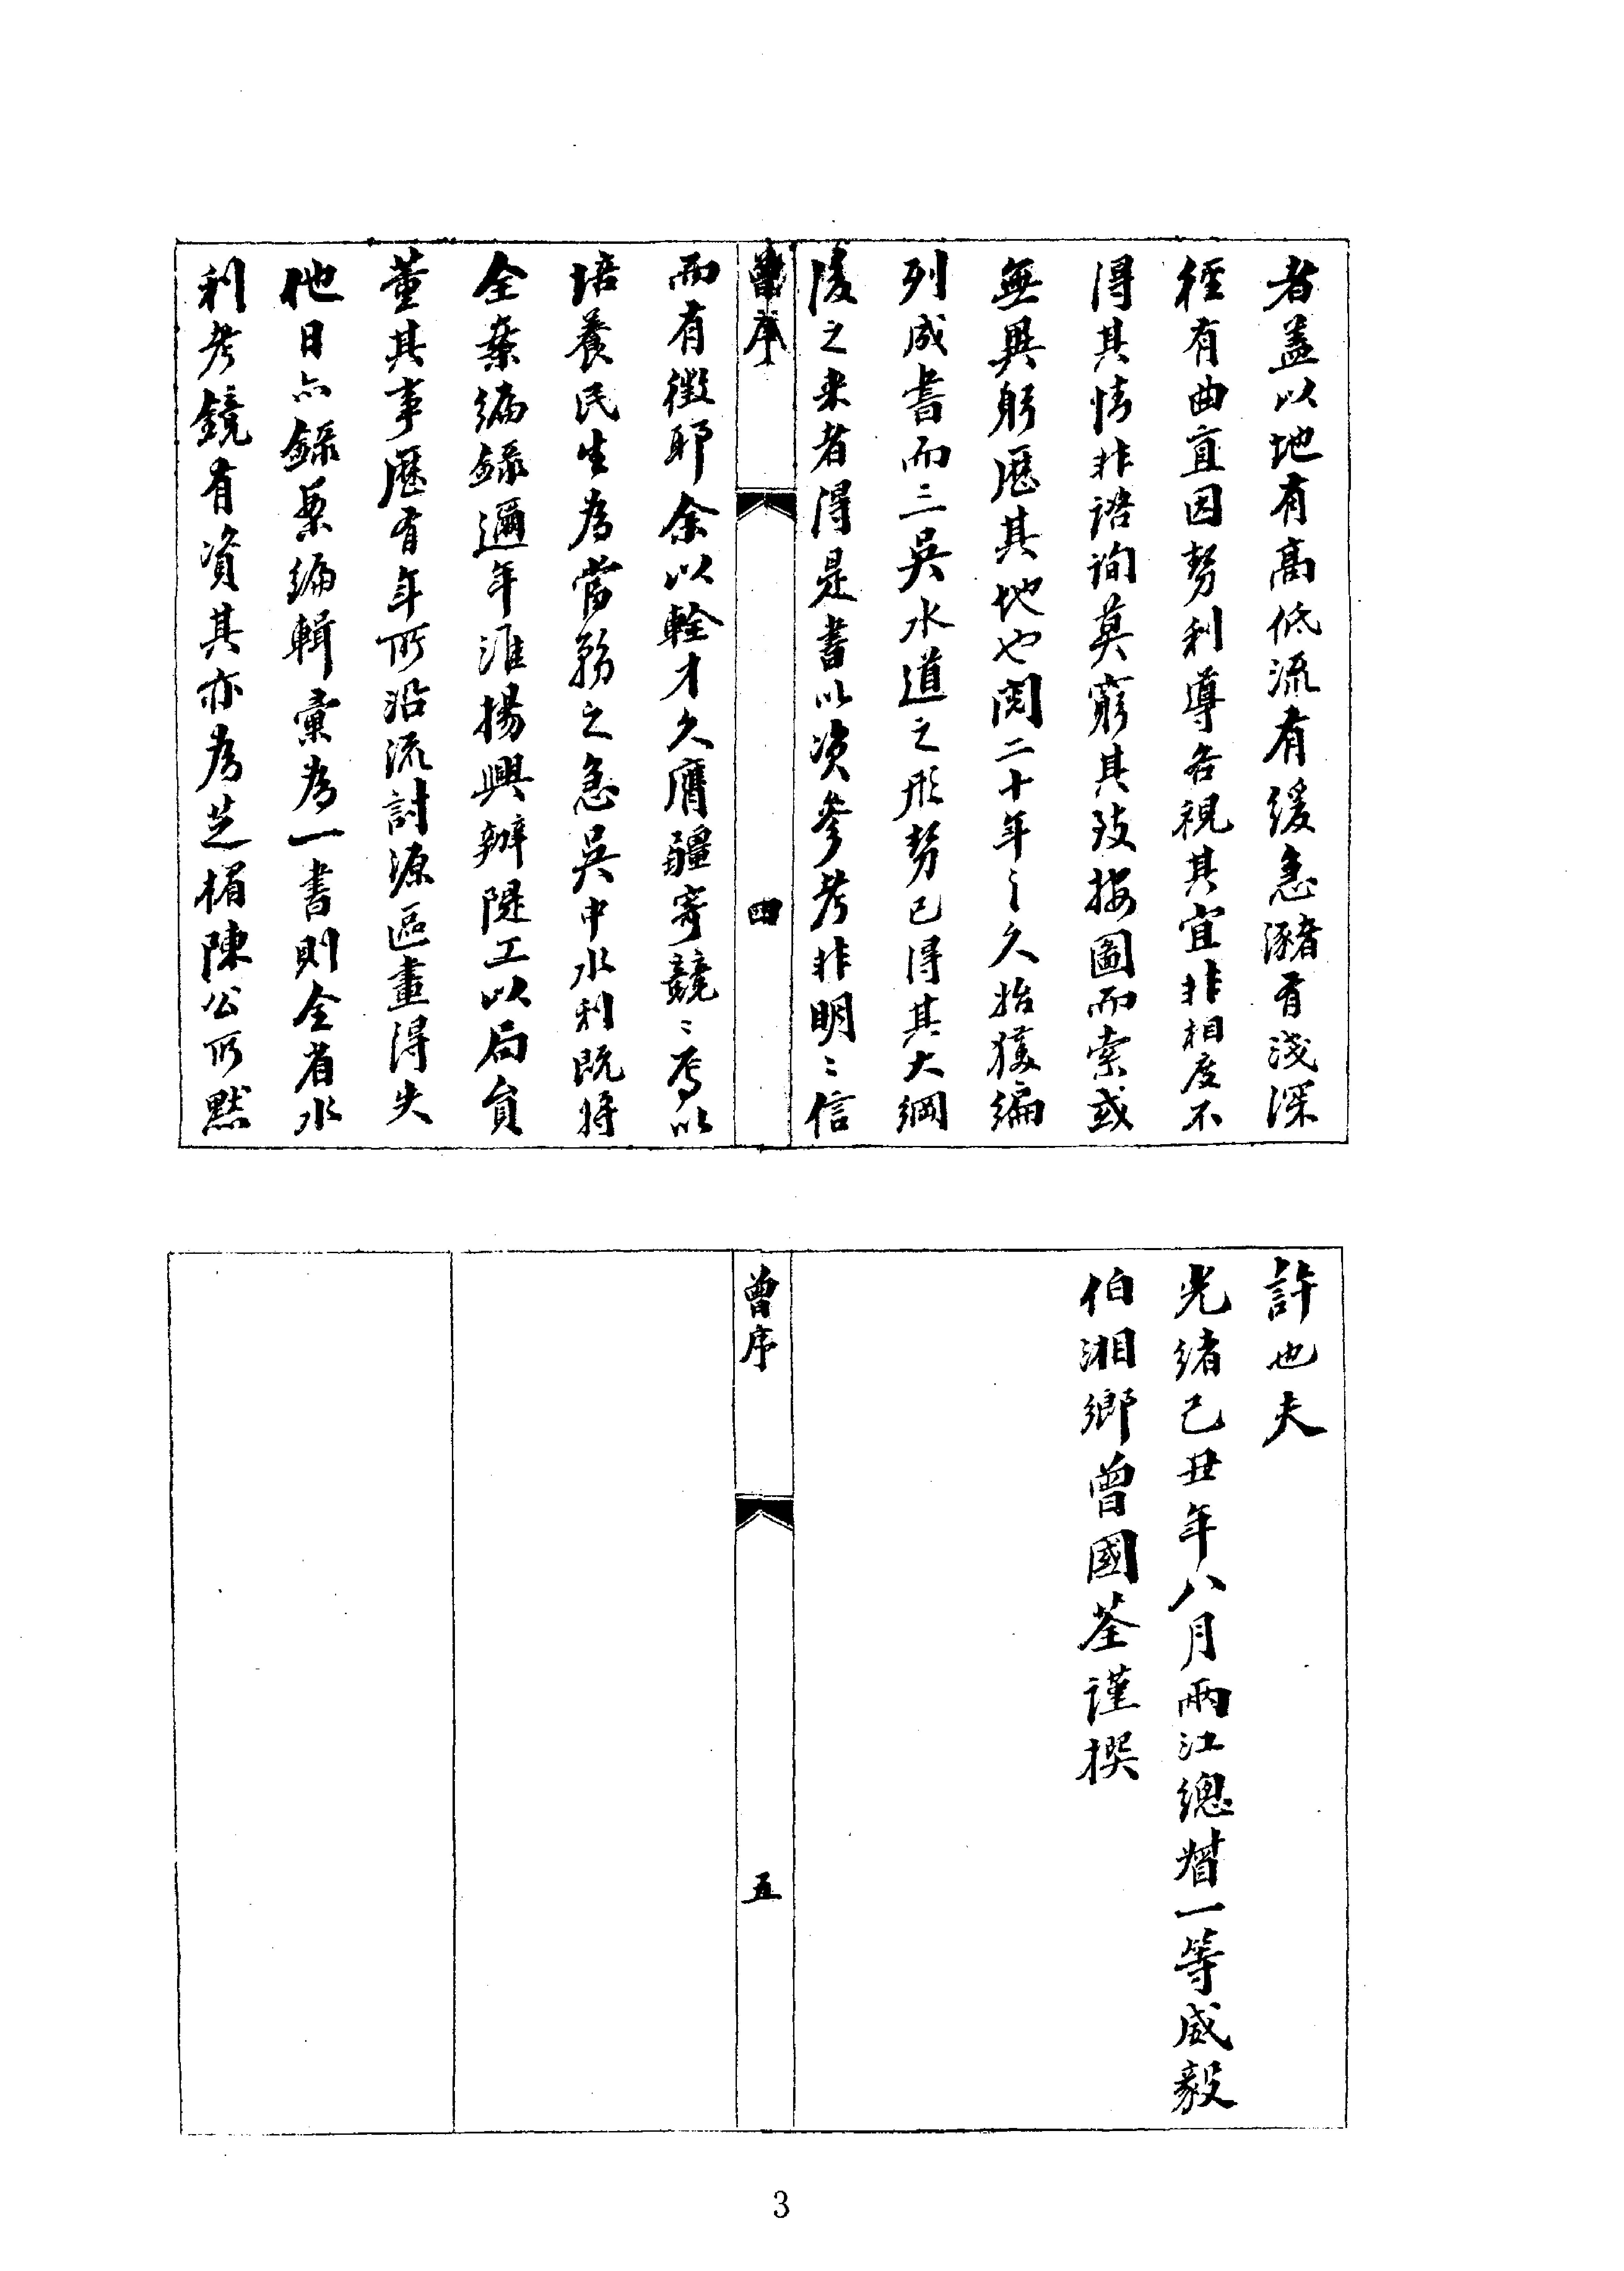 者蓋以地有高低流有緩急瀦有淺深
徑有曲直因勢利導各視其宜非相度不
得其情非諮詢莫窮其致按圖而索或
無異躬歷其地也閱二十年之久始獲編
列成書而三吳水道之形勢已得其大綱
後之来者得是書以資參考非明〻信
曾序
四
而有徵耶余以輇才久膺疆寄兢〻焉以
培養民生為當務之急吳中水利既將
全案編錄邇年淮揚興辦隄工以局員
董其事歷有年所沿流討源區畫得失
他日亦錄案編輯彙為一書則全省水
利考鏡有資其亦為芝楣陳公所默
許也夫
光緒己丑年八月兩江總督一等威毅
伯湘鄉曾國荃謹撰
曾序
五
3